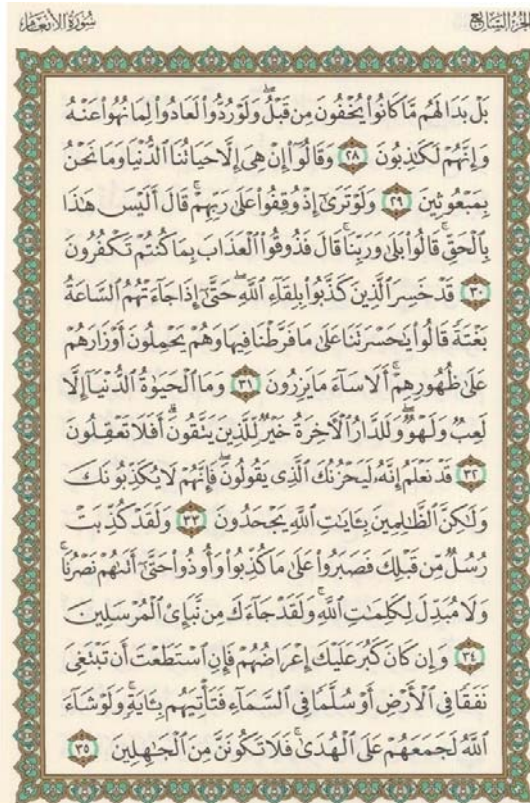 الجزء السابع
سورة الأنعام
بَلْ بَدَا لَهُم مَّا كَانُوا۟ يُخْفُونَ مِن قَبْلُ ۖ وَلَوْ رُدُّوا۟ لَعَادُوا۟ لِمَا نُهُوا۟ عَنْهُ
وَإِنَّهُمْ لَكَـٰذِبُونَ ٢٨ وَقَالُوٓا۟ إِنْ هِىَ إِلَّا حَيَاتُنَا ٱلدُّنْيَا وَمَا نَحْنُ
بِمَبْعُوثِينَ ٢٩ وَلَوْ تَرَىٰٓ إِذْ وُقِفُوا۟ عَلَىٰ رَبِّهِمْ ۚ قَالَ أَلَيْسَ هَـٰذَا
بِٱلْحَقِّ ۚ قَالُوا۟ بَلَىٰ وَرَبِّنَا ۚ قَالَ فَذُوقُوا۟ ٱلْعَذَابَ بِمَا كُنتُمْ تَكْفُرُونَ
٣٠ قَدْ خَسِرَ ٱلَّذِينَ كَذَّبُوا۟ بِلِقَآءِ ٱللَّهِ ۖ حَتَّىٰٓ إِذَا جَآءَتْهُمُ ٱلسَّاعَةُ
بَغْتَةً قَالُوا۟ يَـٰحَسْرَتَنَا عَلَىٰ مَا فَرَّطْنَا فِيهَا وَهُمْ يَحْمِلُونَ أَوْزَارَهُمْ
عَلَىٰ ظُهُورِهِمْ ۚ أَلَا سَآءَ مَا يَزِرُونَ ٣١ وَمَا ٱلْحَيَوٰةُ ٱلدُّنْيَآ إِلَّا
لَعِبٌ وَلَهْوٌ ۖ وَلَلدَّارُ ٱلْـَٔاخِرَةُ خَيْرٌ لِّلَّذِينَ يَتَّقُونَ ۗ أَفَلَا تَعْقِلُونَ
٣٢ قَدْ نَعْلَمُ إِنَّهُۥ لَيَحْزُنُكَ ٱلَّذِى يَقُولُونَ ۖ فَإِنَّهُمْ لَا يُكَذِّبُونَكَ
وَلَـٰكِنَّ ٱلظَّـٰلِمِينَ بِـَٔايَـٰتِ ٱللَّهِ يَجْحَدُونَ ٣٣ وَلَقَدْ كُذِّبَتْ
رُسُلٌ مِّن قَبْلِكَ فَصَبَرُوا۟ عَلَىٰ مَا كُذِّبُوا۟ وَأُوذُوا۟ حَتَّىٰٓ أَتَىٰهُمْ نَصْرُنَا ۚ
وَلَا مُبَدِّلَ لِكَلِمَـٰتِ ٱللَّهِ ۚ وَلَقَدْ جَآءَكَ مِن نَّبَإِى۟ ٱلْمُرْسَلِينَ
٣٤ وَإِن كَانَ كَبُرَ عَلَيْكَ إِعْرَاضُهُمْ فَإِنِ ٱسْتَطَعْتَ أَن تَبْتَغِىَ
نَفَقًا فِى ٱلْأَرْضِ أَوْ سُلَّمًا فِى ٱلسَّمَآءِ فَتَأْتِيَهُم بِـَٔايَةٍ ۚ وَلَوْ شَآءَ
ٱللَّهُ لَجَمَعَهُمْ عَلَى ٱلْهُدَىٰ ۚ فَلَا تَكُونَنَّ مِنَ ٱلْجَـٰهِلِينَ ٣٥